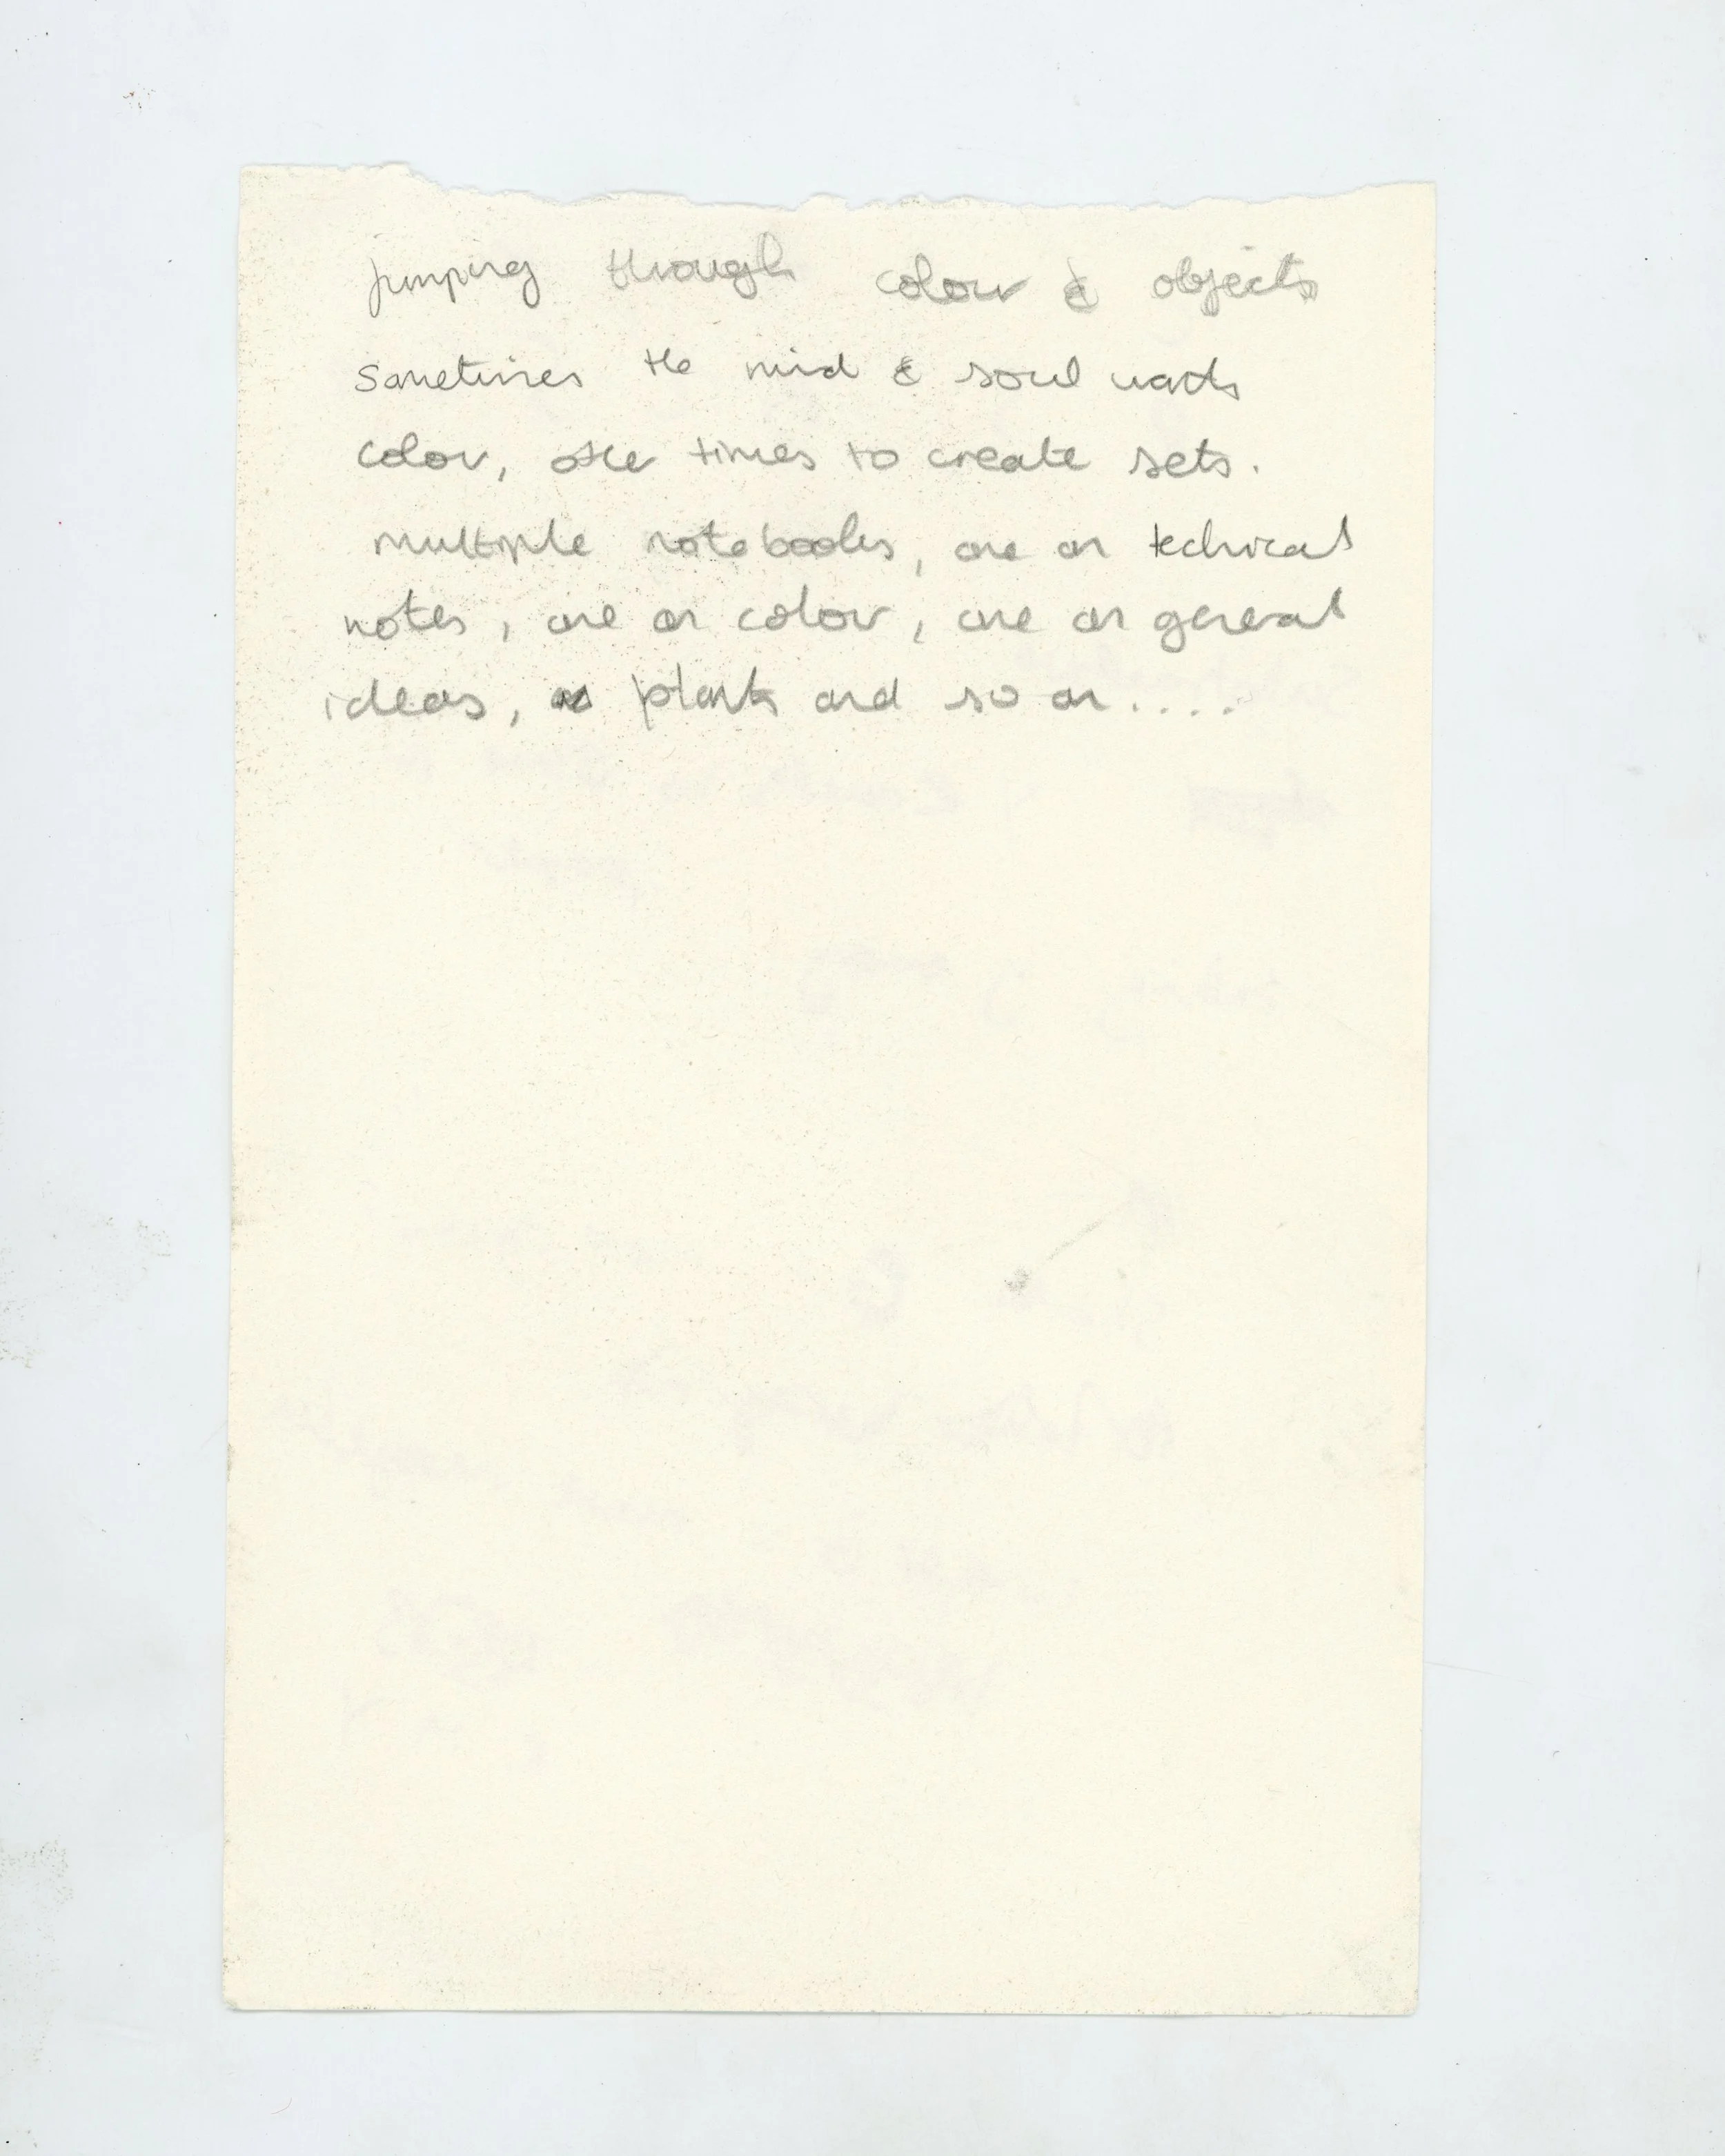 jumping through colour & objects
Sometimes the mind & soul wants
color, other times to create sets.
multiple notebooks, one on technical
notes, one on colour, one on general
ideas, plants and so on....